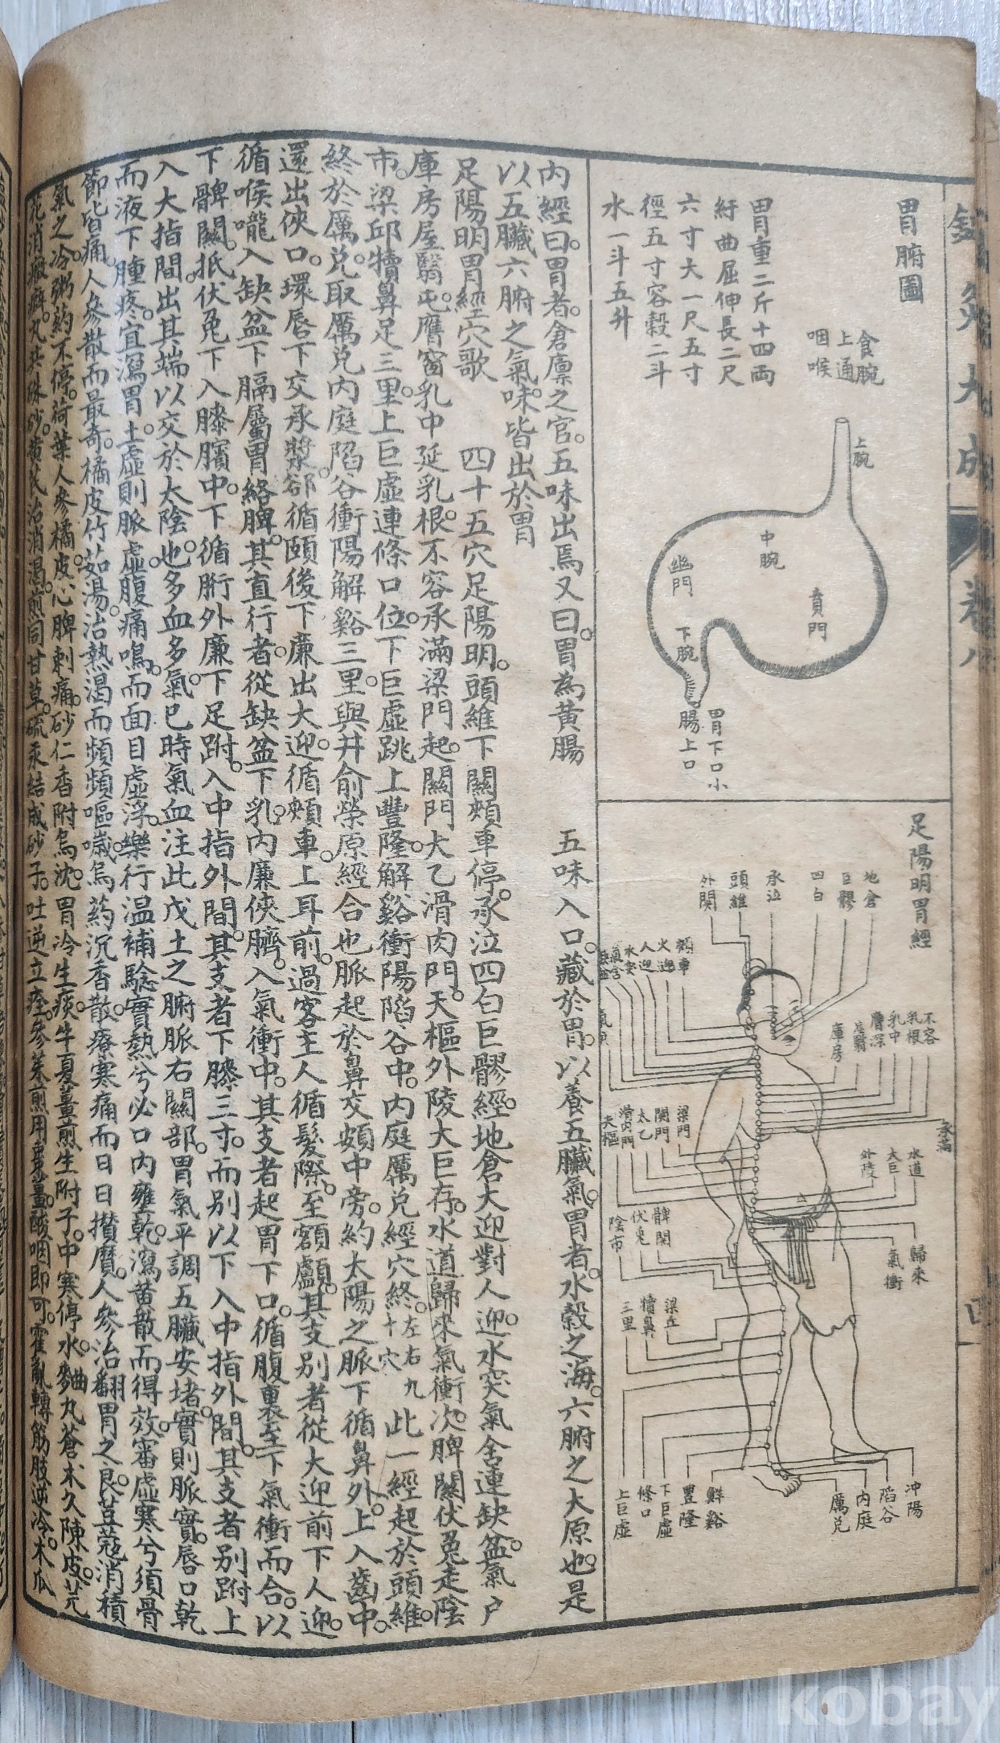 胃腑圖
胃重二斤十四両
紆曲屈伸長二尺
六寸大一尺五寸
徑五寸容穀二斗
水一斗五升
食腕
上通
咽喉
上腕
中腕
賁門
幽門
下腕
胃下口小
腸上口
足陽明胃經
地倉
巨髎
四白
承泣
頭維
外関
人迎
不容
乳根
乳中
膺深
庫房
梁門
関門
太乙
滑肉門
天樞
水道
大巨
外陵
歸來
氣衝
髀関
伏兎
陰市
梁丘
犢鼻
三里
上巨虛
條口
下巨虛
豐隆
鮮谿
厲兌
内庭
陷谷
冲陽
内經曰。胃者。倉廪之官。五味出焉又曰。胃為黃腸　五味入口。藏於胃。以養五臟氣。胃者。水穀之海。六腑之大原也。是
以五臟六腑之氣。味皆出於胃
足陽明胃經穴歌　四十五穴足陽明。頭維下關頰車停。承泣四白巨髎經。地倉大迎對人迎。水突氣舍連缺盆。氣户
庫房屋翳屯。膺窗乳中延乳根。不容承滿梁門起。關門大乙滑肉門。天樞外陵大巨存。水道歸來氣衝次。髀關伏兔走陰
市。梁邱犢鼻足三里。上巨虛連條口位。下巨虛跳上豐隆。解谿衝陽陷谷中。内庭厲兌經穴終。左右九十穴此一經起於頭維。
終於厲兌。取厲兌内庭陷谷衝陽解谿三里。與井俞榮原經合也脈起於鼻交頞中旁。約太陽之脈下循鼻外。上入齒中。
還出俠口。環唇下交承漿。郤循頤後下廉出大迎。循頰車。上耳前。過客主人循髮際。至額顱。其支別者從大迎前下人迎。
循喉嚨入缺盆下膈屬胃絡脾。其直行者。從缺盆下。乳内廉俠臍。入氣衝中。其支者起胃下口。循腹裏至下氣衝而合。以
下髀關抵伏兔下入膝臏中。下循胻外廉下足跗。入中指外間。其支者下膝三寸。而別以下入中指外間。其支者別跗上
入大指間。出其端以交於太陰。也多血多氣。巳時氣血注此戊土之腑脈右關部。胃氣平調五臟安堵。實則脈實。唇口乾
而液下腫疼。宜瀉胃土。虛則脈虛。腹痛鳴。而面目虛浮。藥行温補驗。實熱兮必口内壅乾。瀉黃散而得效。審虛寒兮須骨
節皆痛。人參散而最奇。橘皮竹茹湯。治熱渴而頻頻嘔噦。烏药沉香散。療寒痛而日日攢麿。人參治翻胃之良。荳蔻消積
氣之冷。粥約不停。荷葉人參橘皮。心脾刺痛。砂仁香附烏沈。胃冷生痰。半夏薑煎生附子。中寒停水。麯丸蒼术久陳皮。芫
花消癥癖。丸共硃砂。黃芪治消渴。煎同甘草。硫汞結成砂子。吐逆立痊。參茱煎用棗薑。酸咽即可。霍亂轉筋肢逆冷。木瓜
kobay